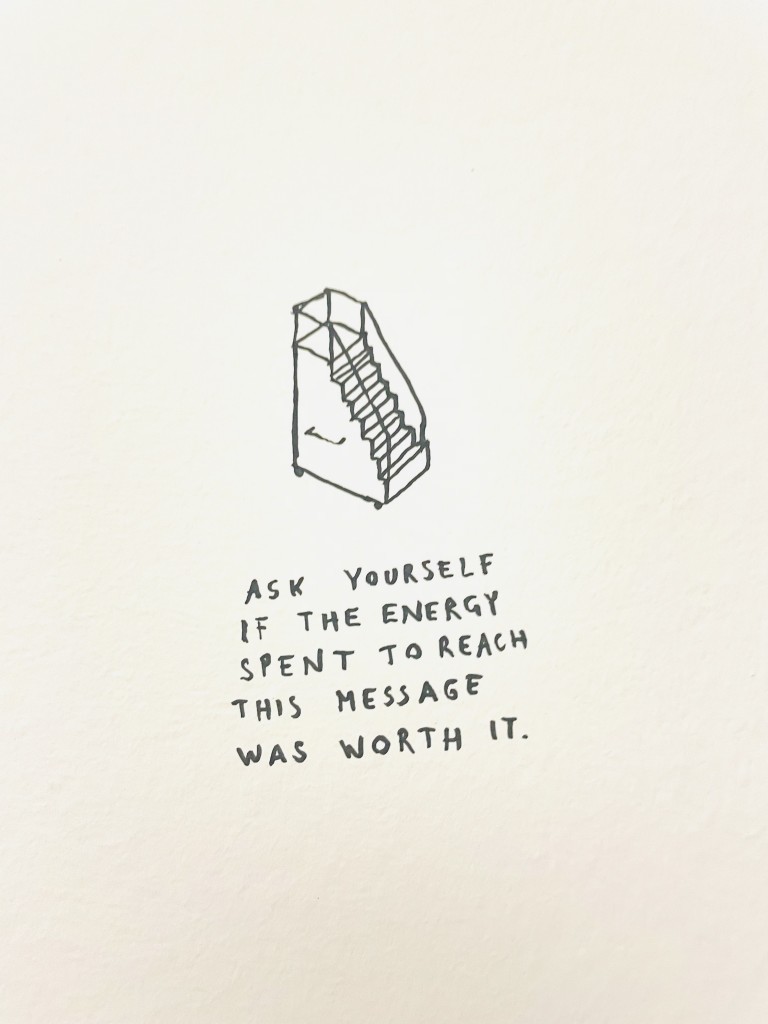 ASK YOURSELF
IF THE ENERGY
SPENT TO REACH
THIS MESSAGE
WAS WORTH IT.